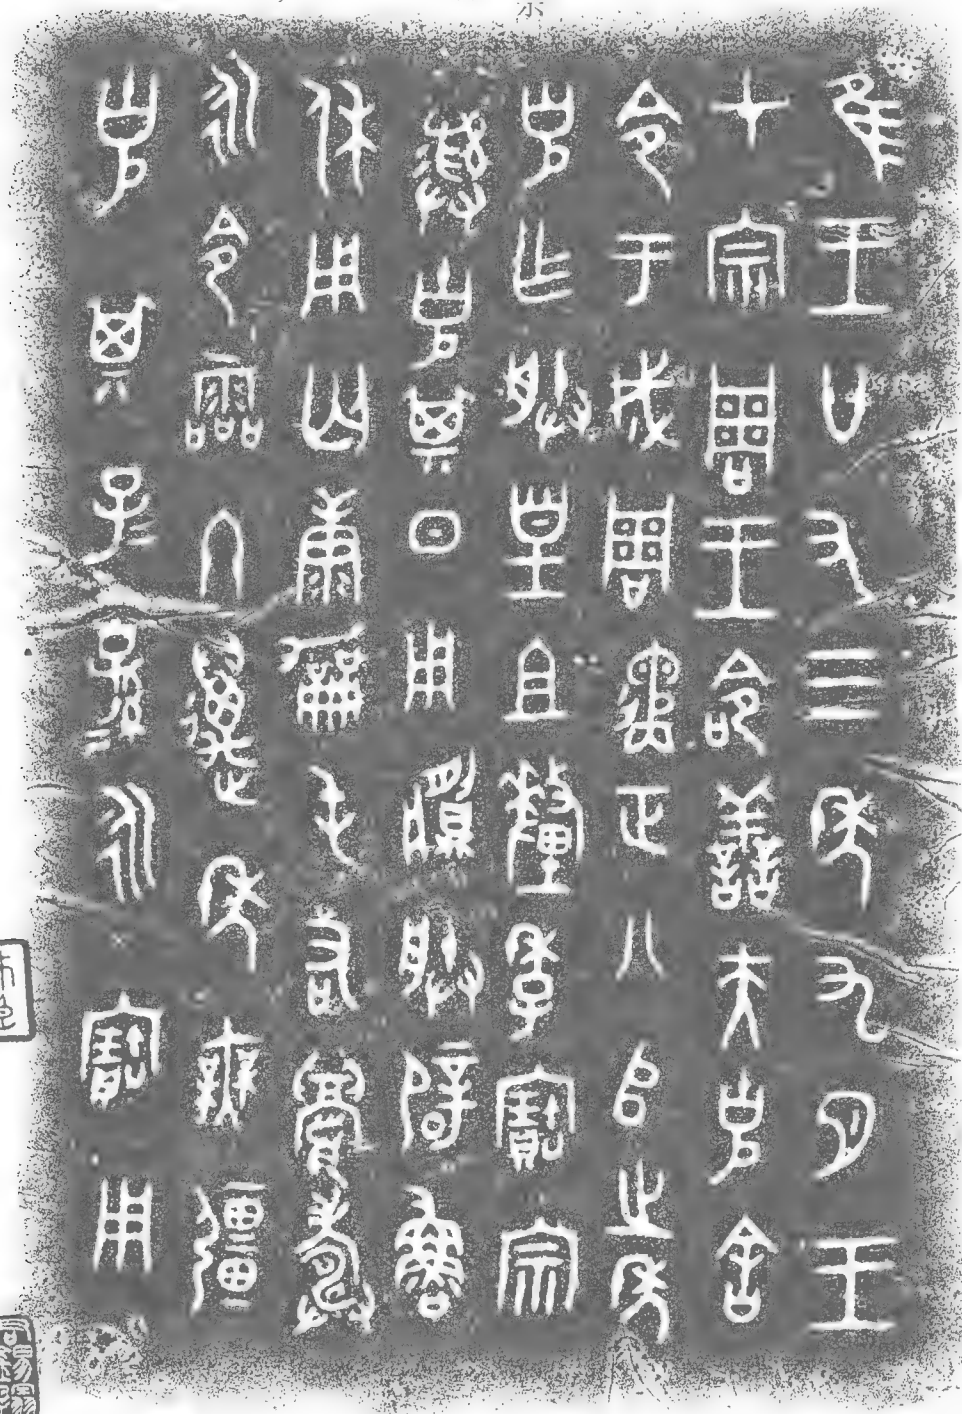 隹王廿又三年九月王
才宗周王命善夫克舍
令于成周遹正八𠂤之年
克乍朕皇且釐季寶宗
彝克其日用䵼朕辟魯
休用匄康勵屯右眉壽
永令霝冬邁年無疆
克其子=孫=永寶用